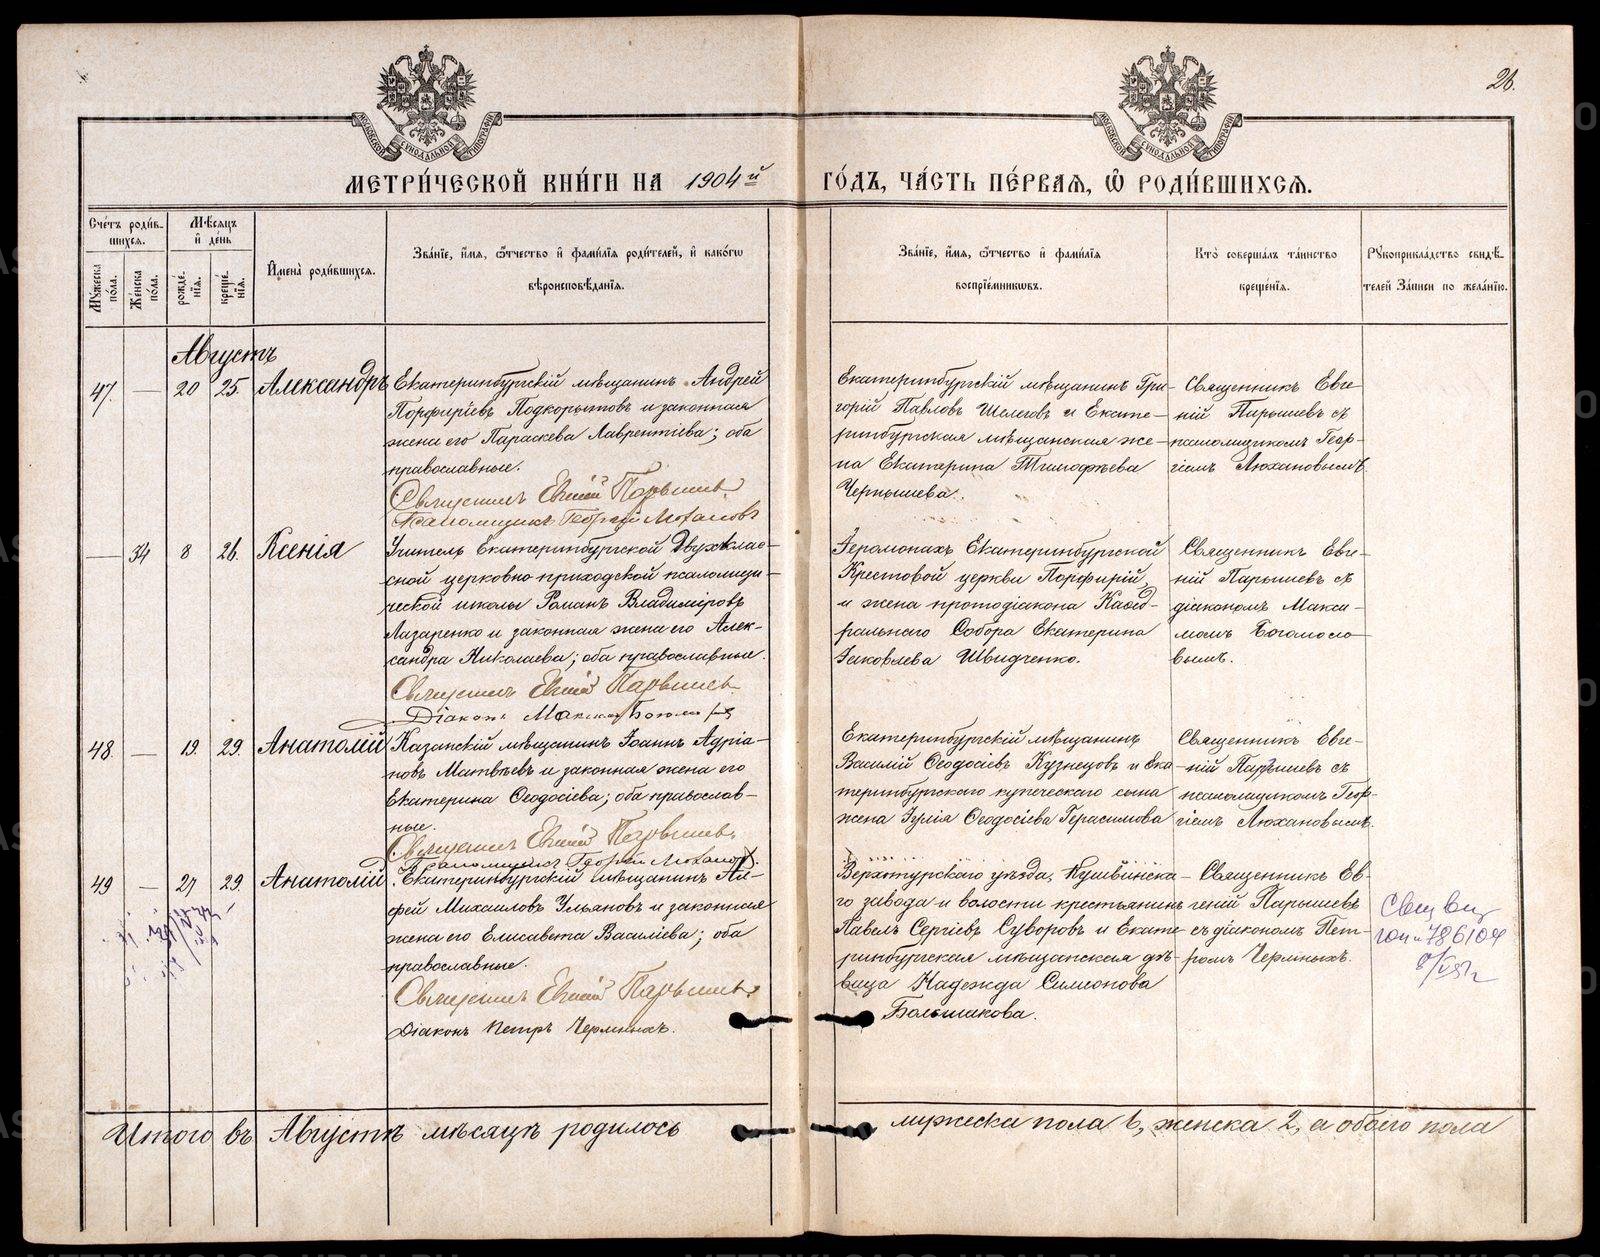 26.
МЕТРИ́ЧЕСКОЙ КНИ́ГИ НА 1904й ГО́ДЪ, ЧА́СТЬ ПЕ́РВАѦ, Ѿ РОДИ́ВШИХСѦ.
Сче́тъ роди́в-
шихсѧ.
Мѣ́сѧцъ
и҆ де́нь
Мꙋ́жеска
по́ла.
Же́нска
по́ла.
рожде́-
нїѧ.
креще́-
нїѧ.
И҆мена̀ роди́вшихсѧ.
Зва́нїе, и҆́мѧ, ѻ҆́тчество и҆ фами́лїѧ роди́телей, и҆ како́гѡ
вѣроисповѣ́данїѧ.
Зва́нїе, и҆́мѧ, ѻ҆́тчество и҆ фами́лїѧ
воспрїе́мникѡвъ.
Кто̀ соверша́лъ та́инство
креще́нїѧ.
Рꙋкоприкла́дство свидѣ́-
телей За́писи по жела́нїю.
Августъ
47. — 20 25. Александръ
Екатеринбургскій мѣщанинъ Андрей
Порфиріевъ Подкорытовъ и законная
жена его Параскева Лаврентіева; оба
православные.
Священникъ Евгеній Парышевъ
Псаломщикъ Георгій Люхановъ
Екатеринбургскій мѣщанинъ Гри-
горій Павловъ Шелеговъ и Екате-
ринбургская мѣщанская же-
на Екатерина Тимофѣева
Чернышева.
Священникъ Евге-
ній Парышевъ съ
псаломщикомъ Геор-
гіемъ Люхановымъ
— 34 8 26. Ксенія
Учитель Екатеринбургской двухклас-
сной церковно-приходской псаломщи-
ческой школы Романъ Владиміровъ
Лазаренко и законная жена его Алек-
сандра Николаева; оба православные.
Священникъ Евгеній Парышевъ
Діаконъ Максимъ
Іеромонахъ Екатеринбургской
Крестовой церкви Порфирій,
и жена протодіакона Каѳед-
ральнаго Собора Екатерина
Іаковлева Швидченко.
Священникъ Евге-
ній Парышевъ съ
діакономъ Макси-
момъ Богомоло-
вымъ.
48. — 19. 29. Анатолій
Казанскій мѣщанинъ Іоаннъ Адріа-
новъ Матвѣевъ и законная жена его
Екатерина Ѳеодосіева; оба православ-
ные.
Священникъ Евгеній Парышевъ
Псаломщикъ Георгій Люхановъ.
Екатеринбургскій мѣщанинъ
Василій Ѳеодосіевъ Кузнецовъ и Ека-
теринбургскаго купеческаго сына
жена Іулія Ѳеодосіева Герасимова
Священникъ Евге-
ній Парышевъ съ
псаломщикомъ Геор-
гіемъ Люхановымъ.
49 — 27 29. Анатолій
Екатеринбургскій мѣщанинъ Ал-
фей Михаиловъ Ульяновъ и законная
жена его Елисавета Василіева; оба
православные.
Священникъ Евгеній Парышевъ
Діаконъ Петръ Черминыхъ.
Верхотурскаго уѣзда, Кушвинска-
го завода и волости крестьянинъ
Павелъ Сергіевъ Суворовъ и Екате-
ринбургская мѣщанская дѣ-
вица Надежда Симеонова
Большакова.
Священникъ Ев-
геній Парышевъ
съ діакономъ Пет-
ромъ Черминыхъ.
Итого въ Августѣ мѣсяцѣ родилось мужеска пола 6, женска 2, а обоего пола